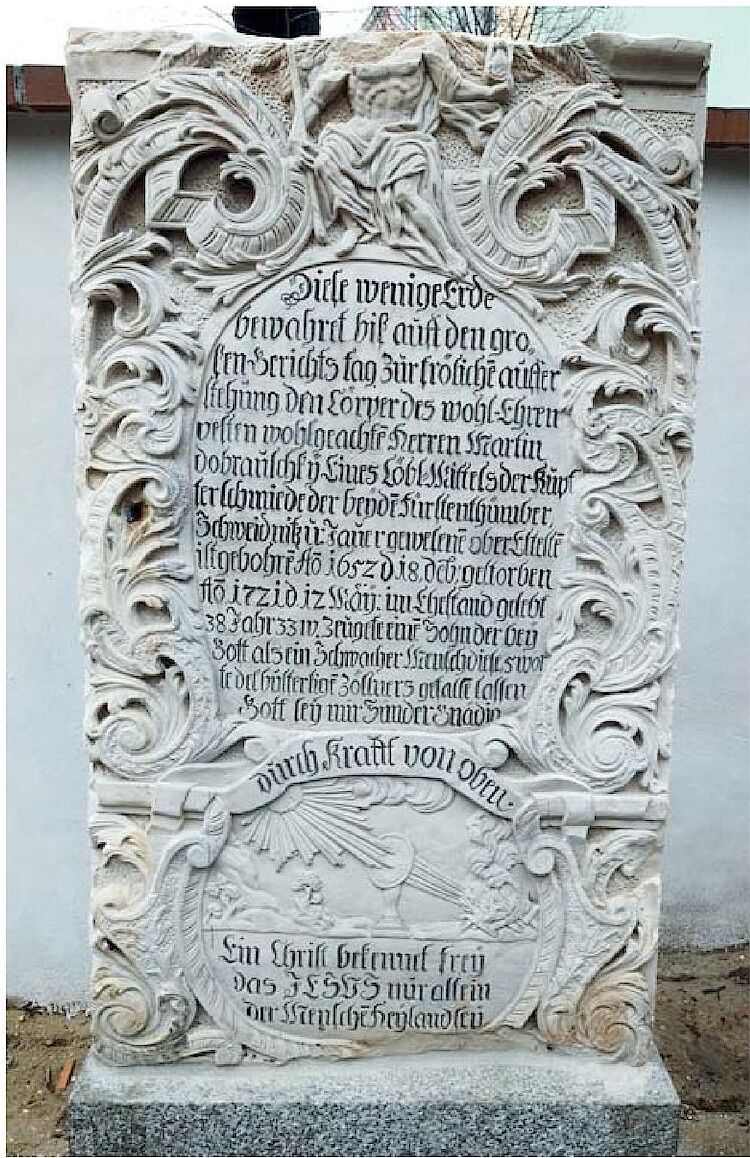 Diese wenige Erde
bewahret biß auff den gro„
ßen Gerichts tag Zur frölichē auffer
stehung den Cörper des wohl-Ehren
vesten wohlgeachtē Herren Martin
dobrauschkÿ Eines Löbl. Mittels der Kupf
ferschmiede der beydē Fürstenthümber,
Schweidnitz ū: Jauer gewesenē ober Eltestē
ist gebohrē Aō 1652 d 18. dcb: gestorben
Aō 1721 d 12 Maÿ: im Ehestand gelebt
38 Jahr 33 w. Zeugete einē Sohn der bey
Gott als ein Schwacher Mensch diese wor
te des bußfertigē Zöllners gefast lassen
Gott seÿ mir Sünder Gnädig
durch Krafft von oben.
Ein Christ bekennet freÿ
das JESUS nur allein
der Mensche Heyland seÿ